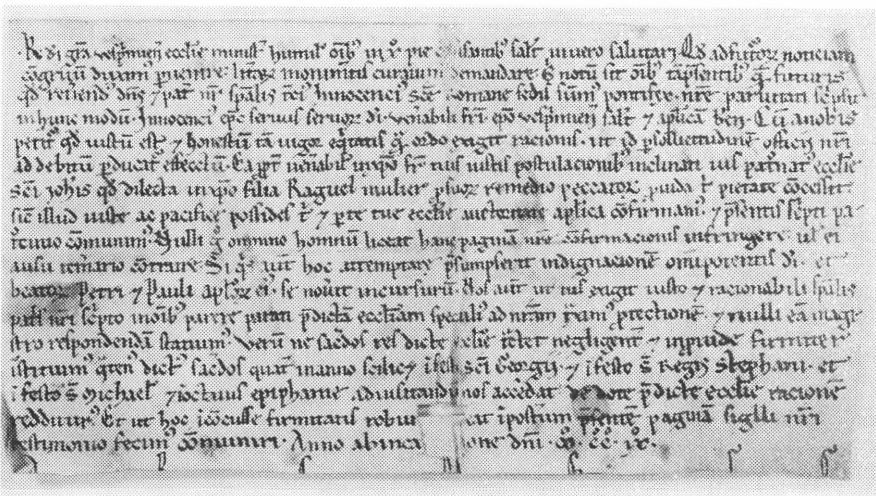 R· di gr̄a vesp̄mien̄ ecclie minist̄ humil' oīb; in xp̄o pie salt̄ in vero salutari Qd ad futoꝝ noticiam
cōgruū duxim' ꝑvenire lit̄aꝝ monimītis curavim' demandare notū sit oīb; tā p̄sentib; q̄ futuris
qd rev̄end' dn̄s ⁊ pat̄ nr̄ sp̄alis Innocenci' sc̄e romane sedis sūm' pontifex nr̄e parvitati sc̄psit
in hunc modū· Innocenci' ep̄c servus servoꝝ di· venabili fr̄i ep̄o vesp̄mien̄ salt̄ ⁊ aplicā ben̄· Cū a nobis
petit' qd iustū est ⁊ honestū tā vigor eq̄tatis q̄ ordo exigit racionis· ut id ꝑ sollicitudinē officii nr̄i
ad debitū ꝑducat' effectū· Ea ꝓpt̄ ven̄abil' in xp̄o fr̄ tuis iustis postulacionib; inclinati ius pat̄nat' ecclie
sc̄i Joh̄is qd dilecta in xp̄o filia Raguel mulier ꝓ suoꝝ remedio peccatoꝝ ꝓvida t' pietate cōcessit
sic̄ illud iuste ac pacifice possides t' ⁊ ꝑ te tue ecclie auctoritate aplica cōfirmam' ⁊ p̄sentis sc̄pti pa-
t̄cinio cōmunim'· Nulli g̊ omnino hominū liceat hanc paginam nr̄e cōfirmacionis infringere ul' ei
ausu tem̄ario cōtraire· Si q̄s aut̄ hoc attemptare p̄sumpserit indignacionē omīpotentis di· et
beatoꝝ Petri ⁊ Pauli ap̄loꝝ ei' se nov̄it incursurū· Nos aut̄ ut ius exigit iusto ⁊ racionabili sp̄alis
pat̄is nr̄i sc̄pto in oīb; parere parati p̄dictā ecclesiam specialit̄ ad nr̄am traxim' ꝓtectionē· ⁊ nulli eā magi
stro respondendā statuim'· verū ne sac̄dos dicte ecclie negligent̄ ⁊ inꝓvide firmiter
īstituim' q̄ten' dict' sac̄dos quat̄ in anno scilic; ī festo sc̄i Georgii· ⁊ ī festo s̄ Regis Stephani· et
ī festo s̄ Michael' ⁊ ī octavis epiphanie ad visitandū nos accedat de dote p̄dicte ecclie racionē
redditur'· Et ut hoc īcōcusse firmitatis robur īpostūm p̄sentē paginā sigilli nr̄i
testimonio fecim' cōmuniri· Anno ab inca one dn̄i· ꝏ· C̄C̄· ix̄·